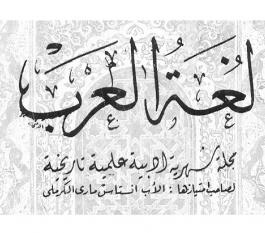 لُغَةُ العَرَبْ
مجلة شهرية ادبية علمية تاريخية
لصاحب امتيازها : الأب انستاس ماري الكرملي